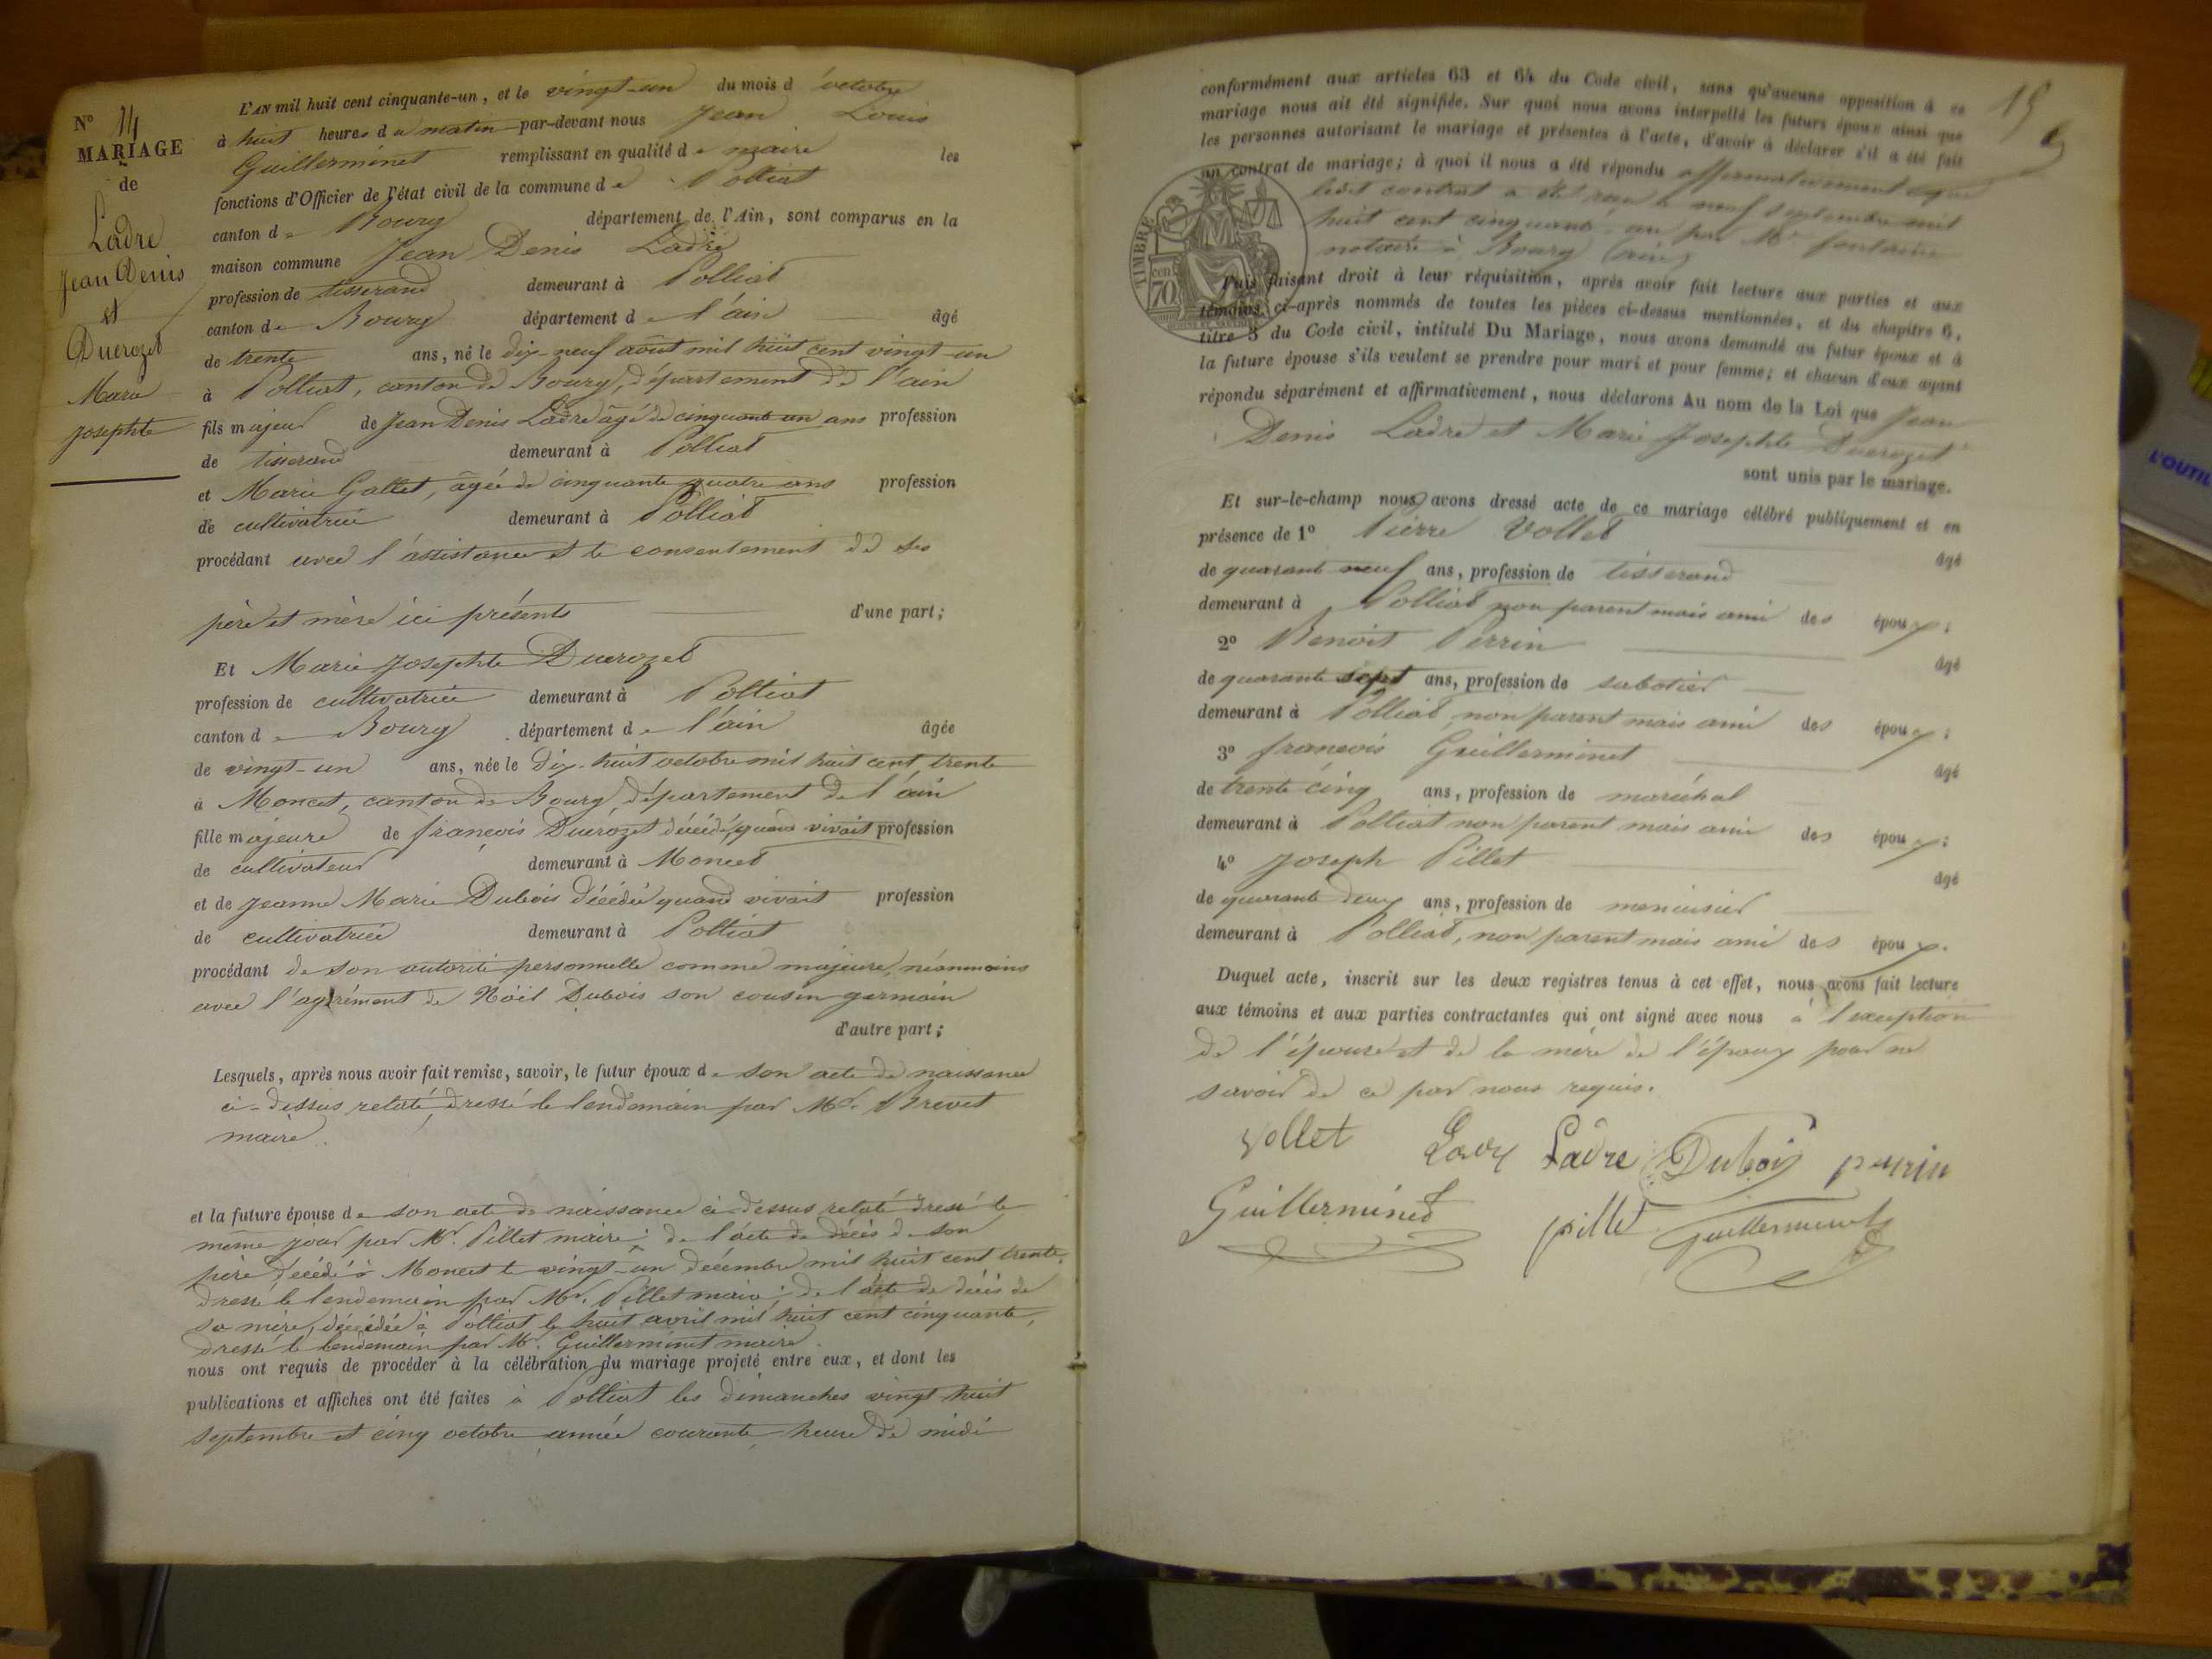 N° 14
MARIAGE
de
Ladre
Jean Denis
et
Duerozet
Marie
Josephte
L'AN mil huit cent cinquante-un, et le vingt-un du mois d'octobre
à huit heures du matin par-devant nous Jean Louis
Guillerminet remplissant en qualité de maire les
fonctions d'Officier de l'état civil de la commune de Polliat
canton de Bourg département de l'Ain, sont comparus en la
maison commune Jean Denis Ladre
profession de tisserand demeurant à Polliat
canton de Bourg département de l'ain âgé
de trente ans, né le dix-neuf août mil huit cent vingt-un
à Polliat, canton de Bourg, département de l'ain
fils majeur de Jean Denis Ladre âgé de cinquante un ans profession
de tisserand demeurant à Polliat
et Marie Gallet, âgée de cinquante quatre ans profession
de cultivatrice demeurant à Polliat
procédant avec l'assistance et le consentement de ses
père et mère ici présents d'une part;
Et Marie Josephte Duerozet
profession de cultivatrice demeurant à Polliat
canton de Bourg département de l'ain âgée
de vingt-un ans, née le dix-huit octobre mil huit cent trente
à Moncet, canton de Bourg, département de l'ain
fille majeure de françois Duerozet décédé, quand vivait profession
de cultivateur demeurant à Moncet
et de Jeanne Marie Dubois décédée quand vivait profession
de cultivatrice demeurant à Polliat
procédant de son autorité personnelle comme majeure, néanmoins
avec l'agrément de Noël Dubois son cousin germain
d'autre part;
Lesquels, après nous avoir fait remise, savoir, le futur époux de son acte de naissance
ci-dessus relaté, dressé le lendemain par Mr. Brevet
maire.
et la future épouse de son acte de naissance ci-dessus relaté dressé le
même jour par Mr. Pillet maire; de l'acte de décès de son
père décédé à Moncet le vingt-un décembre mil huit cent trente,
dressé le lendemain par Mr. Pillet maire; de l'acte de décès de
sa mère, décédée à Polliat le huit avril mil huit cent cinquante,
dressé le lendemain par Mr. Guillerminet maire.
nous ont requis de procéder à la célébration du mariage projeté entre eux, et dont les
publications et affiches ont été faites à Polliat les dimanches vingt-huit
septembre et cinq octobre année courante, heure de midi
15
conformément aux articles 63 et 64 du Code civil, sans qu'aucune opposition à ce
mariage nous ait été signifiée. Sur quoi nous avons interpellé les futurs époux ainsi que
les personnes autorisant le mariage et présentes à l'acte, d'avoir à déclarer s'il a été fait
un contrat de mariage; à quoi il nous a été répondu affirmativement et que
ledit contrat a été reçu le neuf septembre mil
huit cent cinquante-un par Mr fontaine
notaire à Bourg (ain)
TIMBRE
cent
70
Puis faisant droit à leur réquisition, après avoir fait lecture aux parties et aux
témoins ci-après nommés de toutes les pièces ci-dessus mentionnées, et du chapitre 6,
titre 5 du Code civil, intitulé Du Mariage, nous avons demandé au futur époux et à
la future épouse s'ils veulent se prendre pour mari et pour femme; et chacun d'eux ayant
répondu séparément et affirmativement, nous déclarons Au nom de la Loi que Jean
Denis Ladre et Marie Josephte Duerozet
sont unis par le mariage.
Et sur-le-champ nous avons dressé acte de ce mariage célébré publiquement et en
présence de 1° Pierre Vollet âgé
de quarante neuf ans, profession de tisserand
demeurant à Polliat non parent mais ami des époux;
2° Benoit Perrin âgé
de quarante sept ans, profession de sabotier
demeurant à Polliat, non parent mais ami des époux;
3° françois Guillerminet âgé
de trente cinq ans, profession de maréchal
demeurant à Polliat non parent mais ami des époux;
4° Joseph Pillet âgé
de quarante deux ans, profession de menuisier
demeurant à Polliat, non parent mais ami des époux.
Duquel acte, inscrit sur les deux registres tenus à cet effet, nous avons fait lecture
aux témoins et aux parties contractantes qui ont signé avec nous à l'exception
de l'épouse et de la mère de l'époux pour ne
savoir de ce par nous requis.
Vollet Ladre Dubois perrin
Guillerminet pillet Guillerminet
L'OUTIL